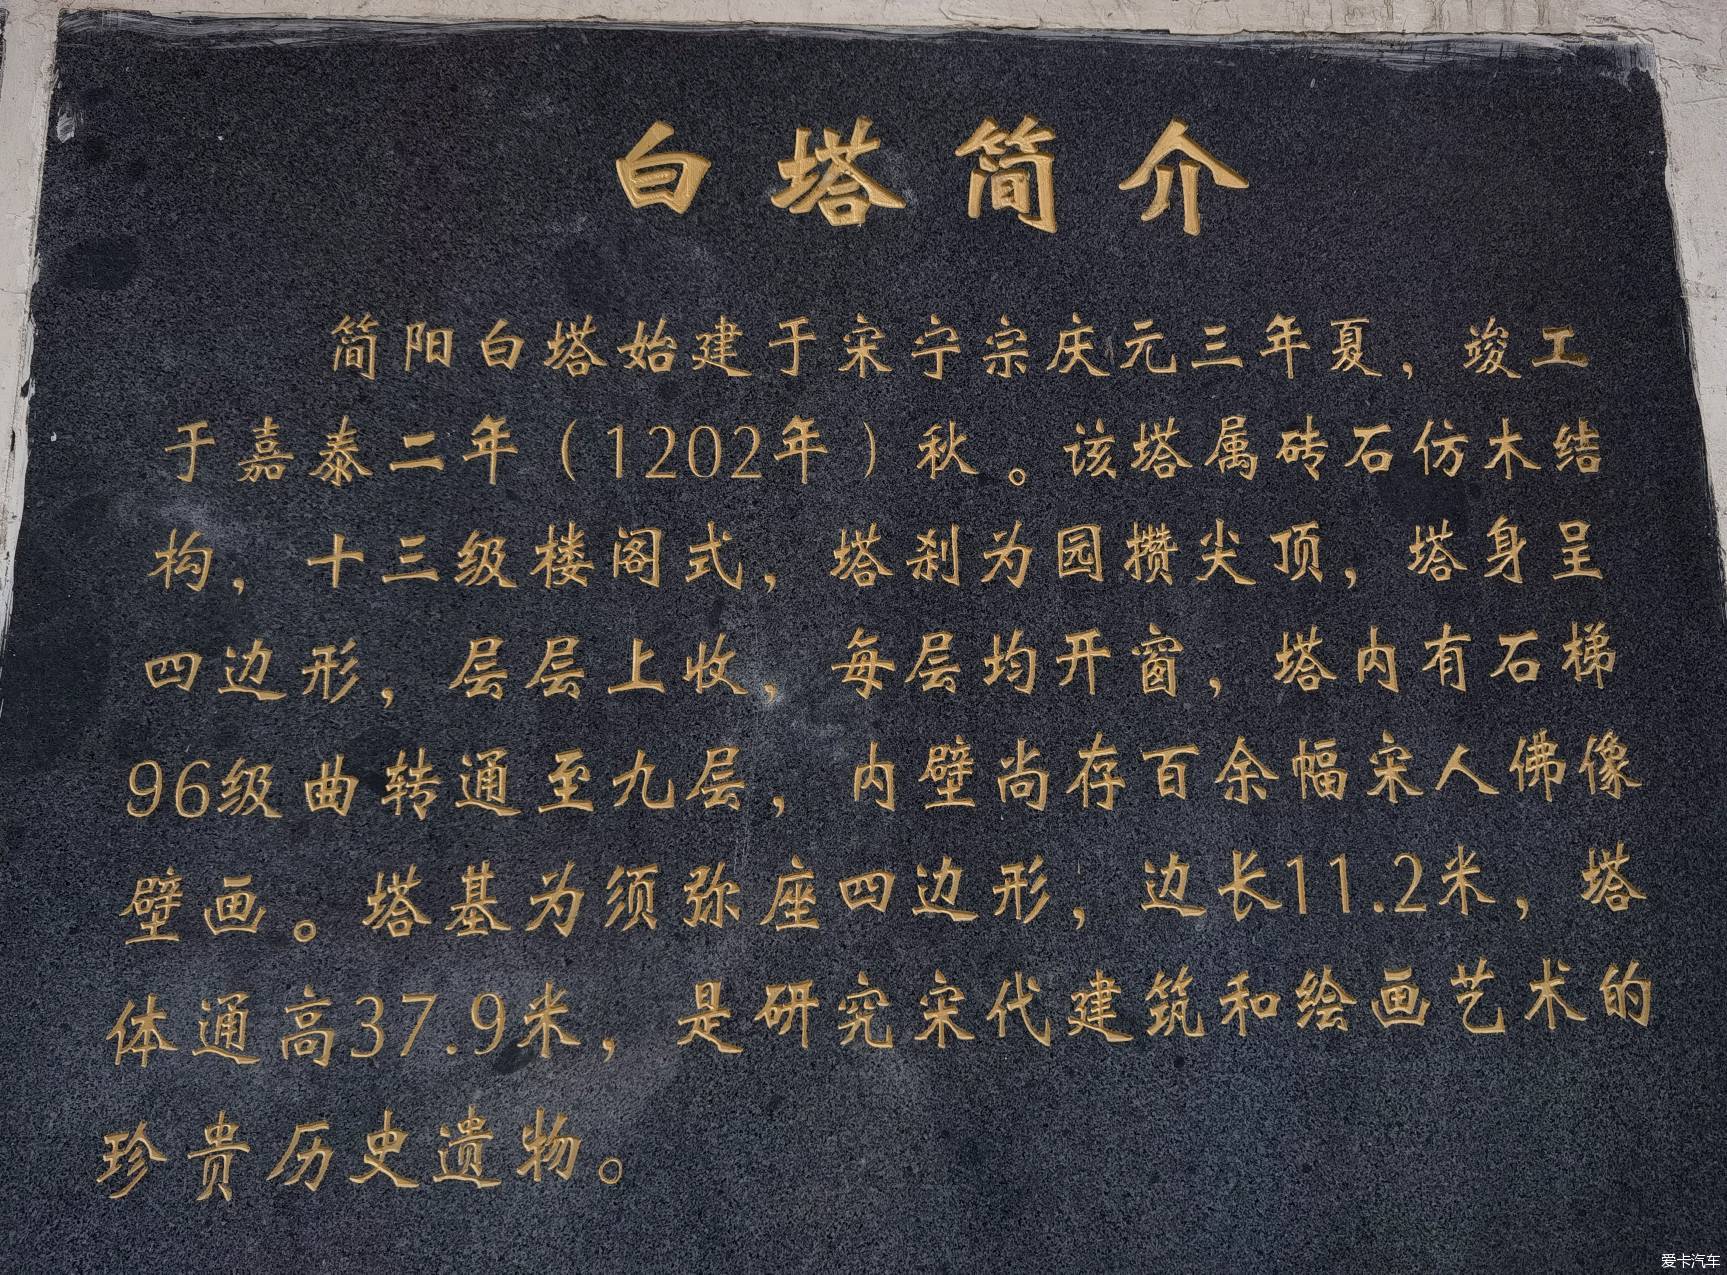 白塔简介
简阳白塔始建于宋宁宗庆元三年夏，竣工
于嘉泰二年（1202年）秋。该塔属砖石仿木结
构，十三级楼阁式，塔刹为园攒尖顶，塔身呈
四边形，层层上收，每层均开窗，塔内有石梯
96级曲转通至九层，内壁尚存百余幅宋人佛像
壁画。塔基为须弥座四边形，边长11.2米，塔
体通高37.9米，是研究宋代建筑和绘画艺术的
珍贵历史遗物。
爱卡汽车